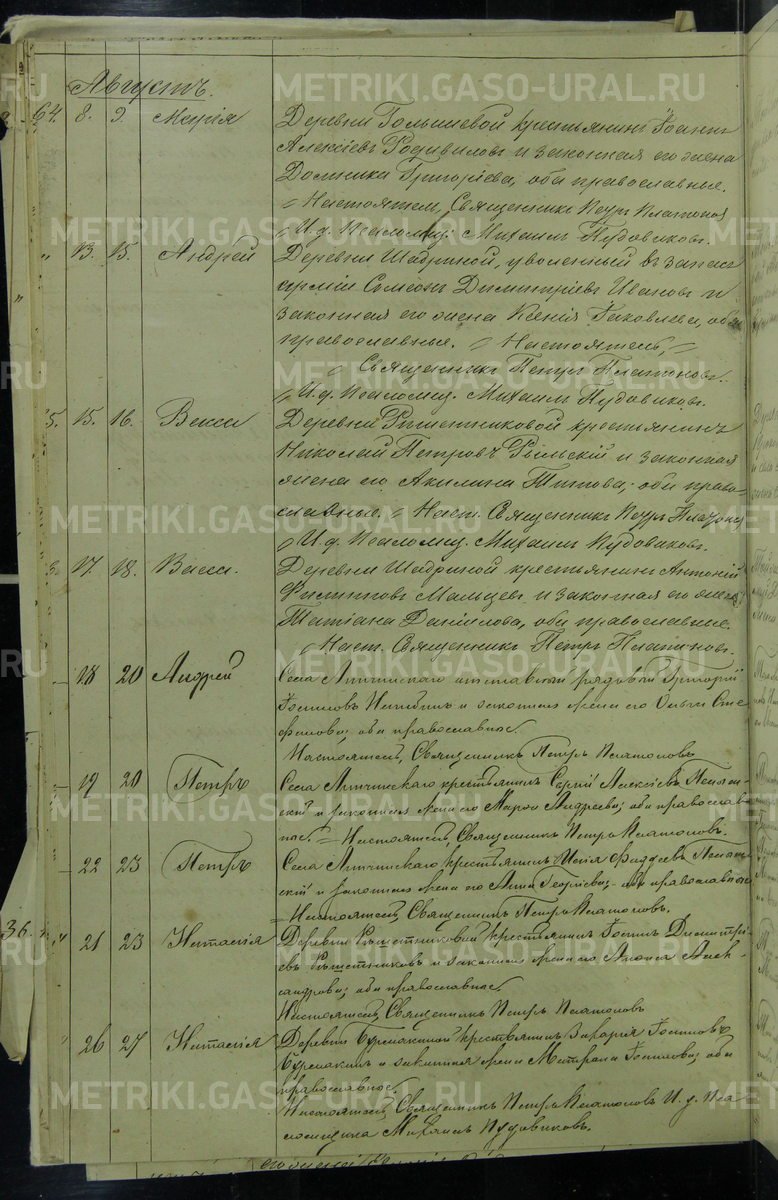 Августъ.
64. 8. 9. Марія Деревни Голышевой крестьянинъ Іоаннъ
Алексіевъ Родивиловъ и законная его жена
Домника Григоріева, оба православные.
Настоятел, Священникъ Петръ Платонов
И. д. Псаломщ: Михаилъ Пудовиковъ.
13. 15. Андрей Деревни Шадриной, уволенный въ запасъ
арміи Симеонъ Димитріевъ Ивановъ и
законная его жена Ксенія Іаковлева, оба
православные. Настоятель,
Священникъ Петръ Платоновъ.
И. д. Псаломщ. Михаилъ Пудовиковъ.
5. 15. 16. Васса Деревни Ришетниковой крестьянинъ
Николай Петровъ и законная
жена его Акилина Титова, оба право-
славные. Наст. Священникъ Петръ Платонов
И. д. Псаломщ. Михаилъ Пудовиковъ.
17. 18. Васса. Деревни Шадриной крестьянинъ Антоній
Филипповъ Мальцевъ и законная его жена
Татіана Даніилова, оба православные.
Наст. Священникъ Петръ Платоновъ.
18 20 Андрей Села отставной рядовый Григорій
Іосифовъ и законная жена его Ольга Сте
фанова; оба православные.
Настоятель, Священникъ Петръ Платоновъ
19 20 Петръ Села крестьянинъ Сергій Алексіевъ
и законная жена его Марѳа Андреева; оба православ
ные. Настоятель, Священникъ Петръ Платоновъ.
22 23 Петръ Села крестьянинъ Исаія Фаддеевъ
и законная жена его Анна Георгіева; оба православные
Настоятель, Священникъ Петръ Платоновъ.
36. 21 23 Наталія Деревни Рѣшетниковой крестьянинъ Іосифъ Димитрі-
евъ Рѣшетниковъ и законная жена его Алек-
сандрова; оба православные.
Настоятель, Священникъ Петръ Платоновъ
26 27 Наталія Деревни крестьянинъ Захарія Іосифовъ
и законная жена Матрона Іосифова; оба
православные.
Настоятель, Священникъ Петръ Платоновъ И. д. Пса
ломщика Михаилъ Пудовиковъ.
METRIKI.GASO-URAL.RU